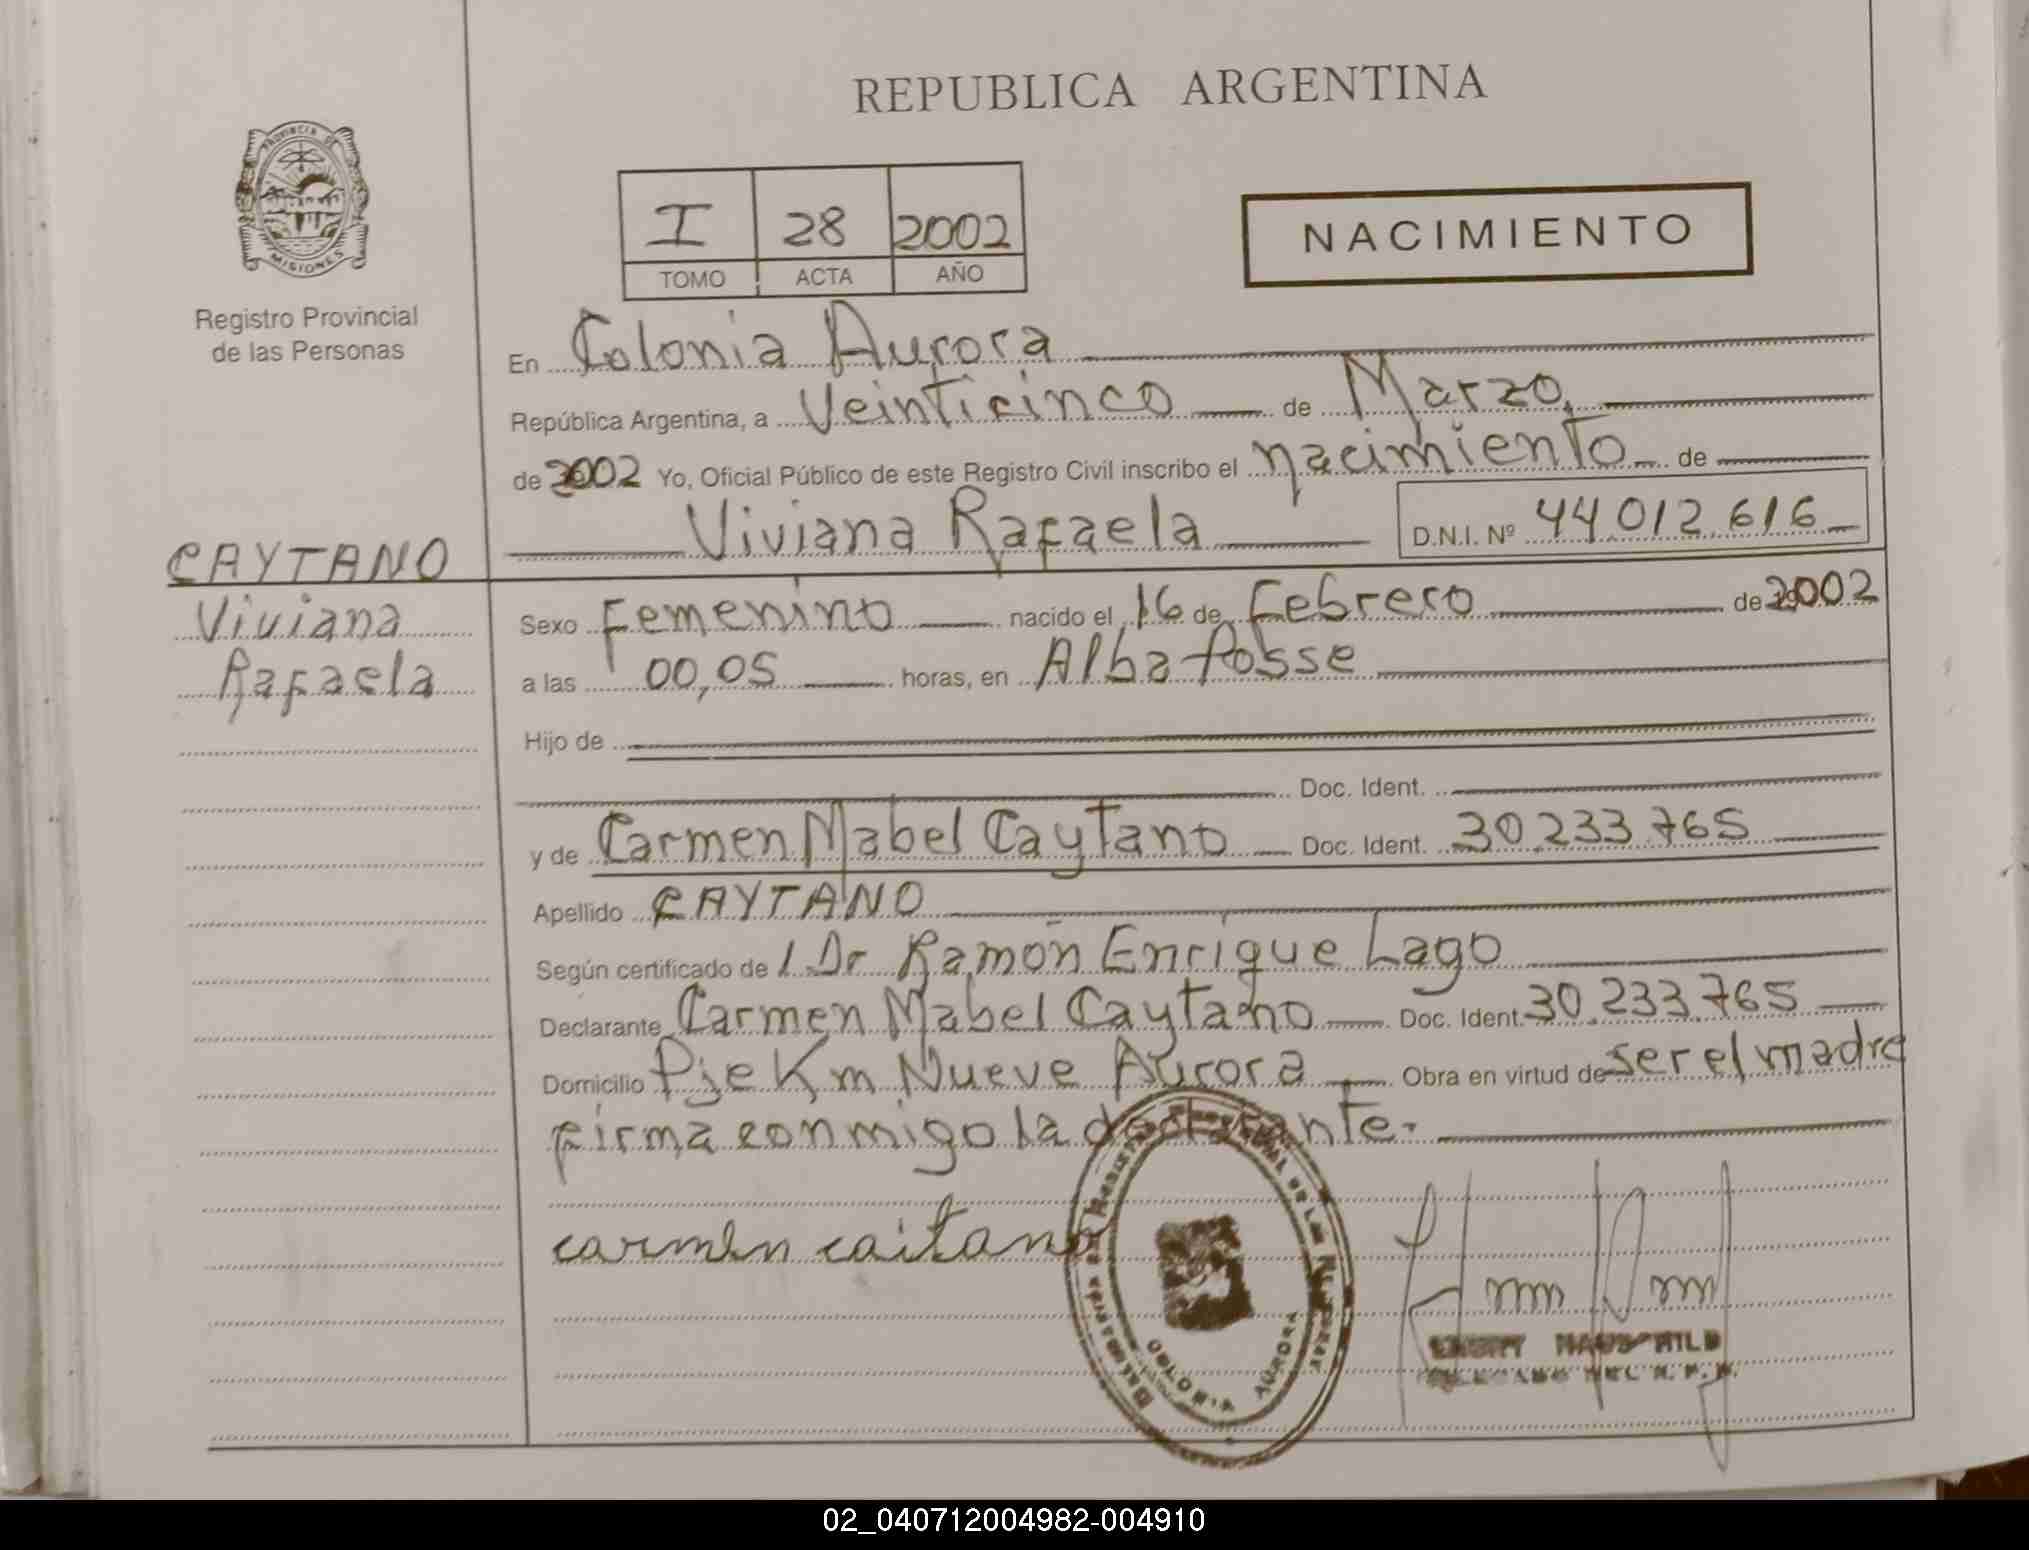 REPUBLICA ARGENTINA
PROVINCIA DE
MISIONES
Registro Provincial
de las Personas
I 28 2002
TOMO ACTA AÑO
NACIMIENTO
En Colonia Aurora
República Argentina, a Veinticinco de Marzo
de 2002 Yo, Oficial Público de este Registro Civil inscribo el nacimiento de
Viviana Rafaela D.N.I. Nº 44.012.616
CAYTANO
Viviana
Rafaela
Sexo Femenino nacido el 16 de Febrero de 2002
a las 00,05 horas, en Alba Posse
Hijo de
Doc. Ident.
y de Carmen Mabel Caytano Doc. Ident. 30.233.765
Apellido CAYTANO
Según certificado de l Dr Ramón Enrique Lago
Declarante Carmen Mabel Caytano Doc. Ident. 30.233.765
Domicilio Pje Km Nueve Aurora Obra en virtud de ser el madre
firma conmigo la declarante.
carmen caitano
COLONIA AURORA
02_040712004982-004910